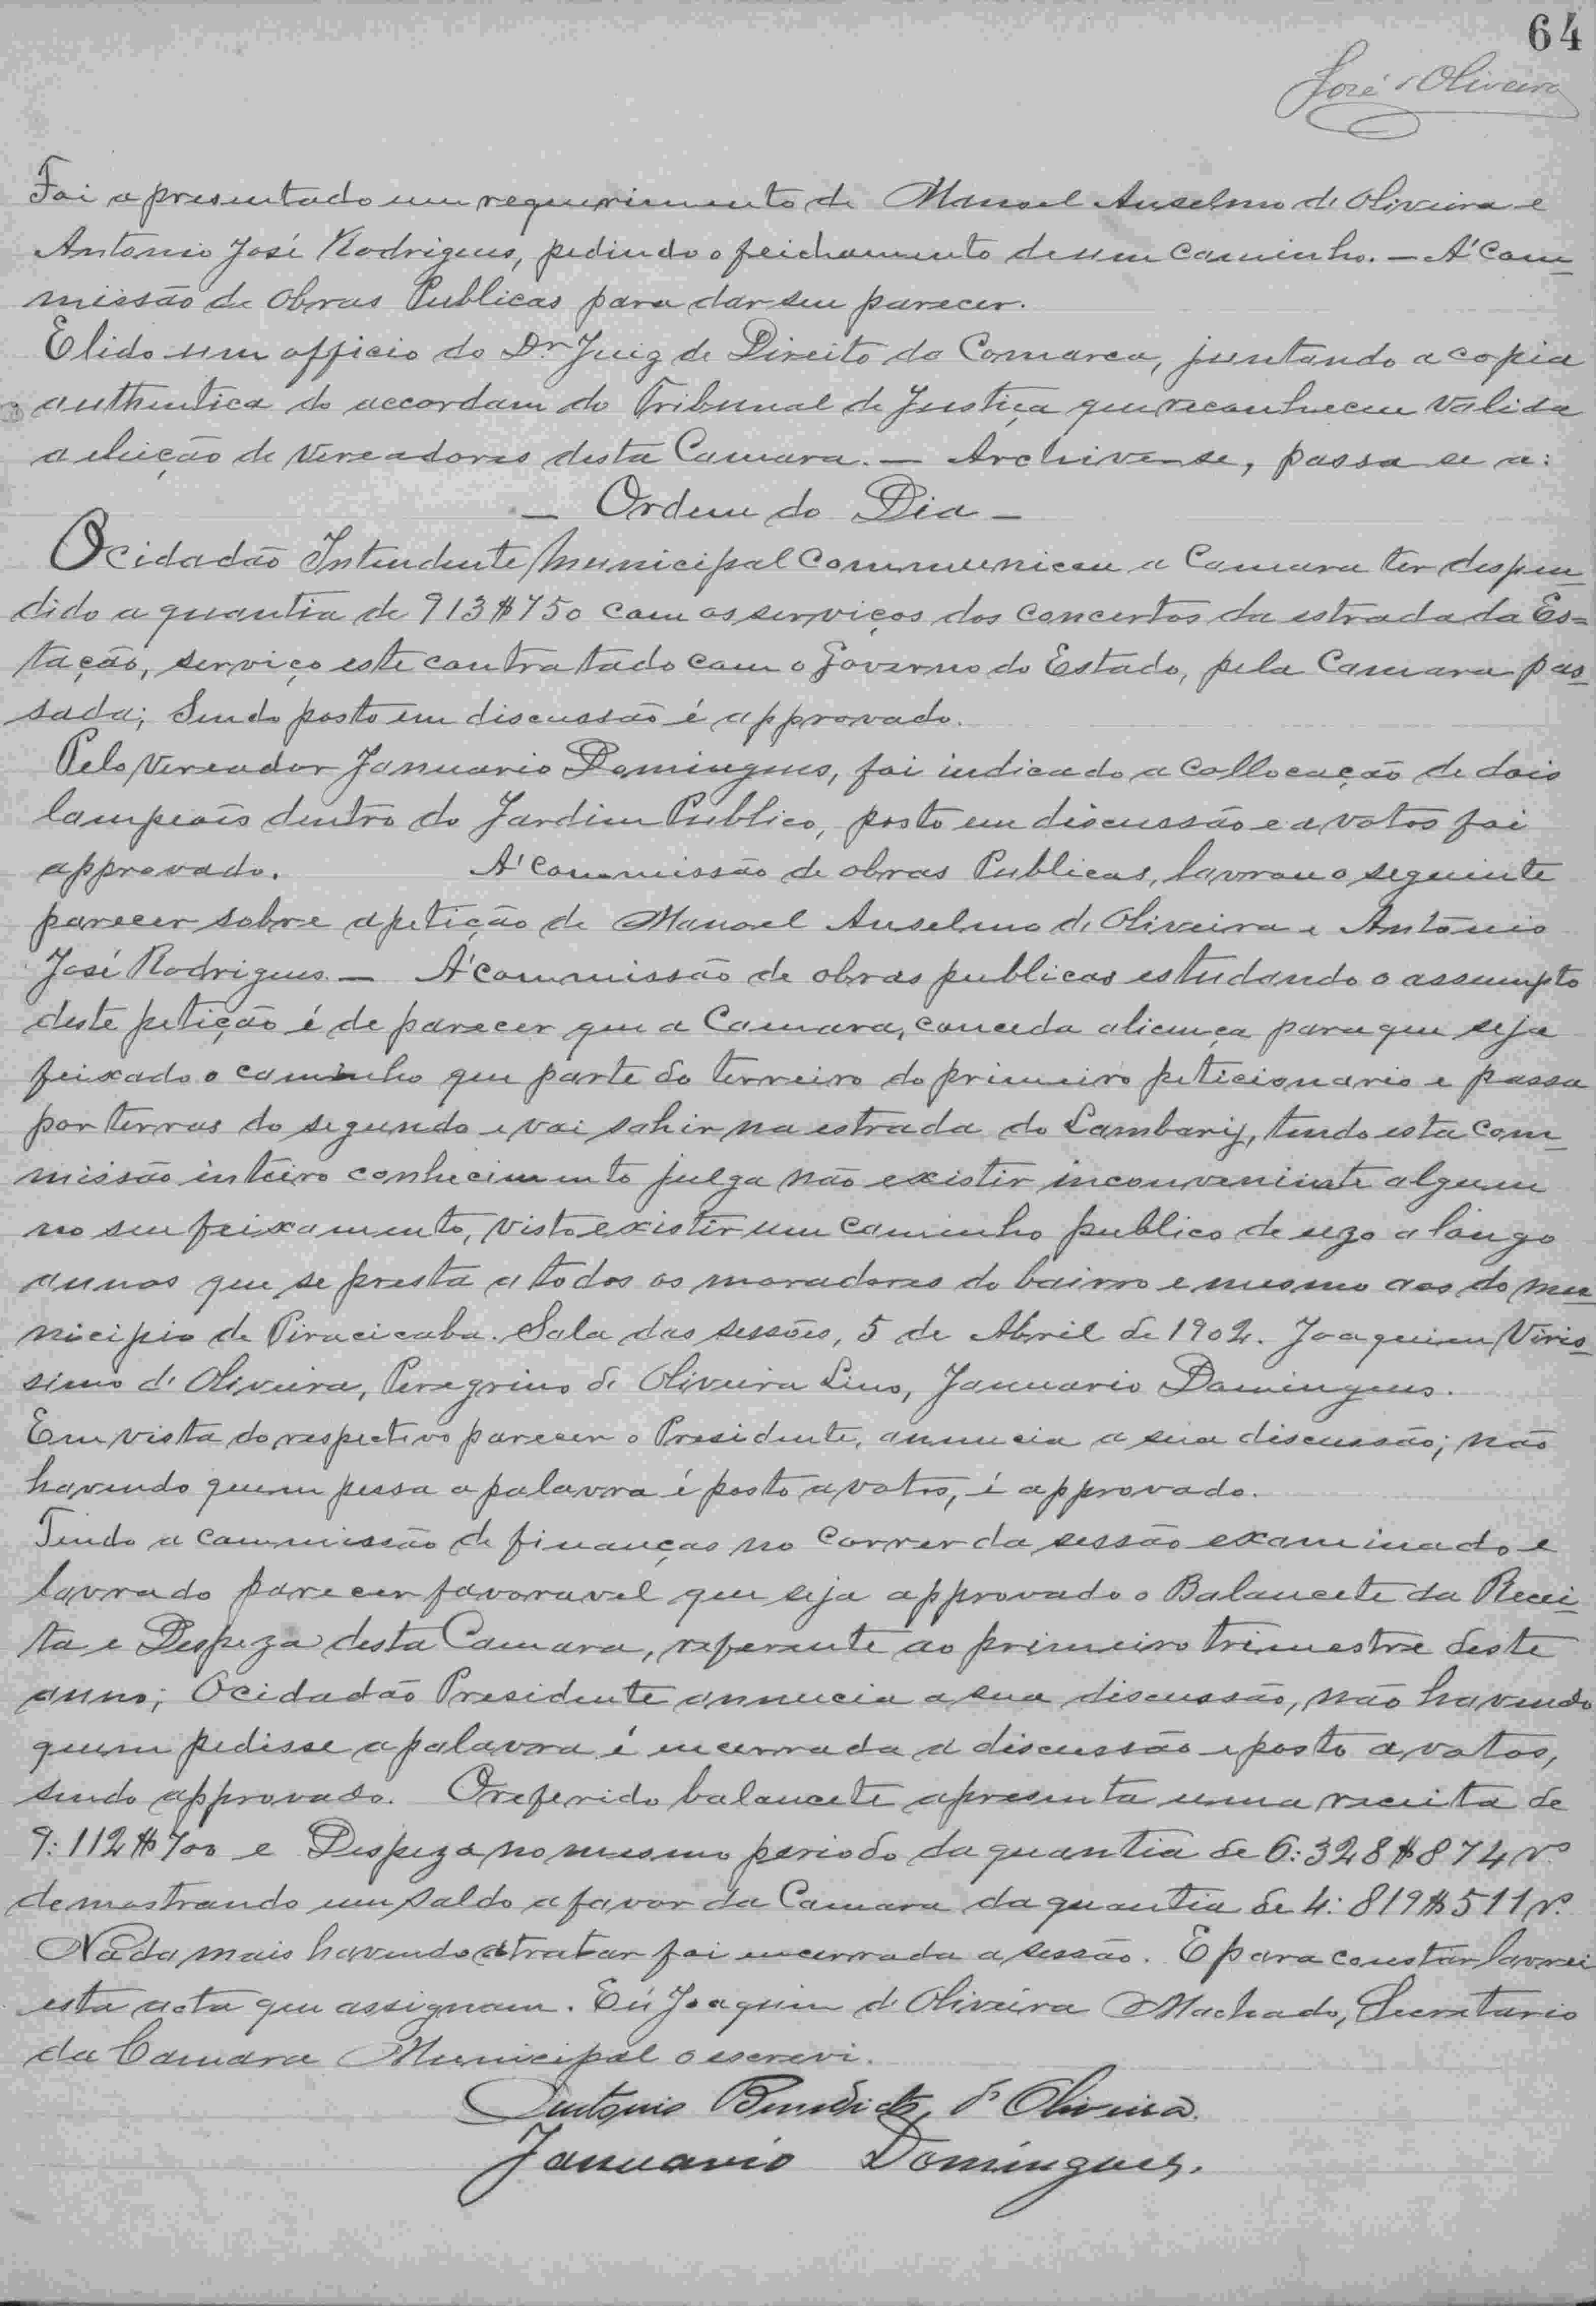 64
José d'Oliveira
Foi apresentado um requerimento de Manoel Anselmo d'Oliveira e
Antonio José Rodrigues, pedindo o feichamento de um caminho. — A' Com-
missão de Obras Publicas para dar seu parecer.
E lido um officio do Dr. Juiz de Direito da Comarca, juntando a copia
authentica do accordam do Tribunal de Justiça que reconheceu valida
a eleição de Vereadores desta Camara. — Archive-se, passa se a:
— Ordem do Dia —
O cidadão Intendente Municipal Communicou a Camara ter despen-
dido a quantia de 913$750 com os serviços dos concertos da estrada da Es=
tação, serviço este contratado com o Governo do Estado, pela Camara pas-
sada; Sendo posto em discussão é approvado.
Pelo Vereador Januario Domingues, foi indicado a collocação de dois
lampeoīs dentro do Jardim Publico, posto em discussão e a votos foi
approvado. A' Commissão de obras Publicas, lavrou o seguinte
parecer sobre a petição de Manoel Anselmo d'Oliveira e Antonio
José Rodrigues. — A' Commissão de obras publicas estudando o assumpto
deste petição é de parecer que a Camara, conceda a licença para que seja
feixado o caminho que parte do terreiro do primeiro peticionario e passa
por terras do segundo e vai sahir na estrada do Lambary, tendo esta com-
missão inteiro conhecimento julga não existir inconveniente algum
no seu feixamento, visto existir um caminho publico de uzo a longo
annos que se presta a todos os moradores do bairro e mesmo aos do mu-
nicipio de Piracicaba. Sala das sessões, 5 de Abril de 1902. Joaquim Viris-
simo d'Oliveira, Peregrino de Oliveira Lino, Januario Domingues.
Em vista do respectivo parecer o Presidente, annucia a sua discussão; não
havendo quem pessa a palavra é posto a votos, é approvado.
Tendo a commissão de finanças no correr da sessão examinado e
lavrado parecer favoravel que seja approvado o Balancete da Recei-
ta e Despeza desta Camara, referente ao primeiro trimestre deste
anno; O cidadão Presidente annucia a sua discussão, não havendo
quem pedisse a palavra é encerrada a discussão e posto a votos,
sendo approvado. O referido balancete apresenta uma receita de
9:112$700 e Despeza no mesmo periodo da quantia de 6:328$874 rs.
demostrando um saldo a favor da Camara da quantia de 4:819$511 rs.
Nada mais havendo a tratar foi encerrada a sessão. E para constar lavrei
esta acta que assignam. Eu Joaquim d'Oliveira Machado, Secretario
da Camara Municipal o escrevi.
Antonio Benedicto d'Oliveira.
Januario Domingues.